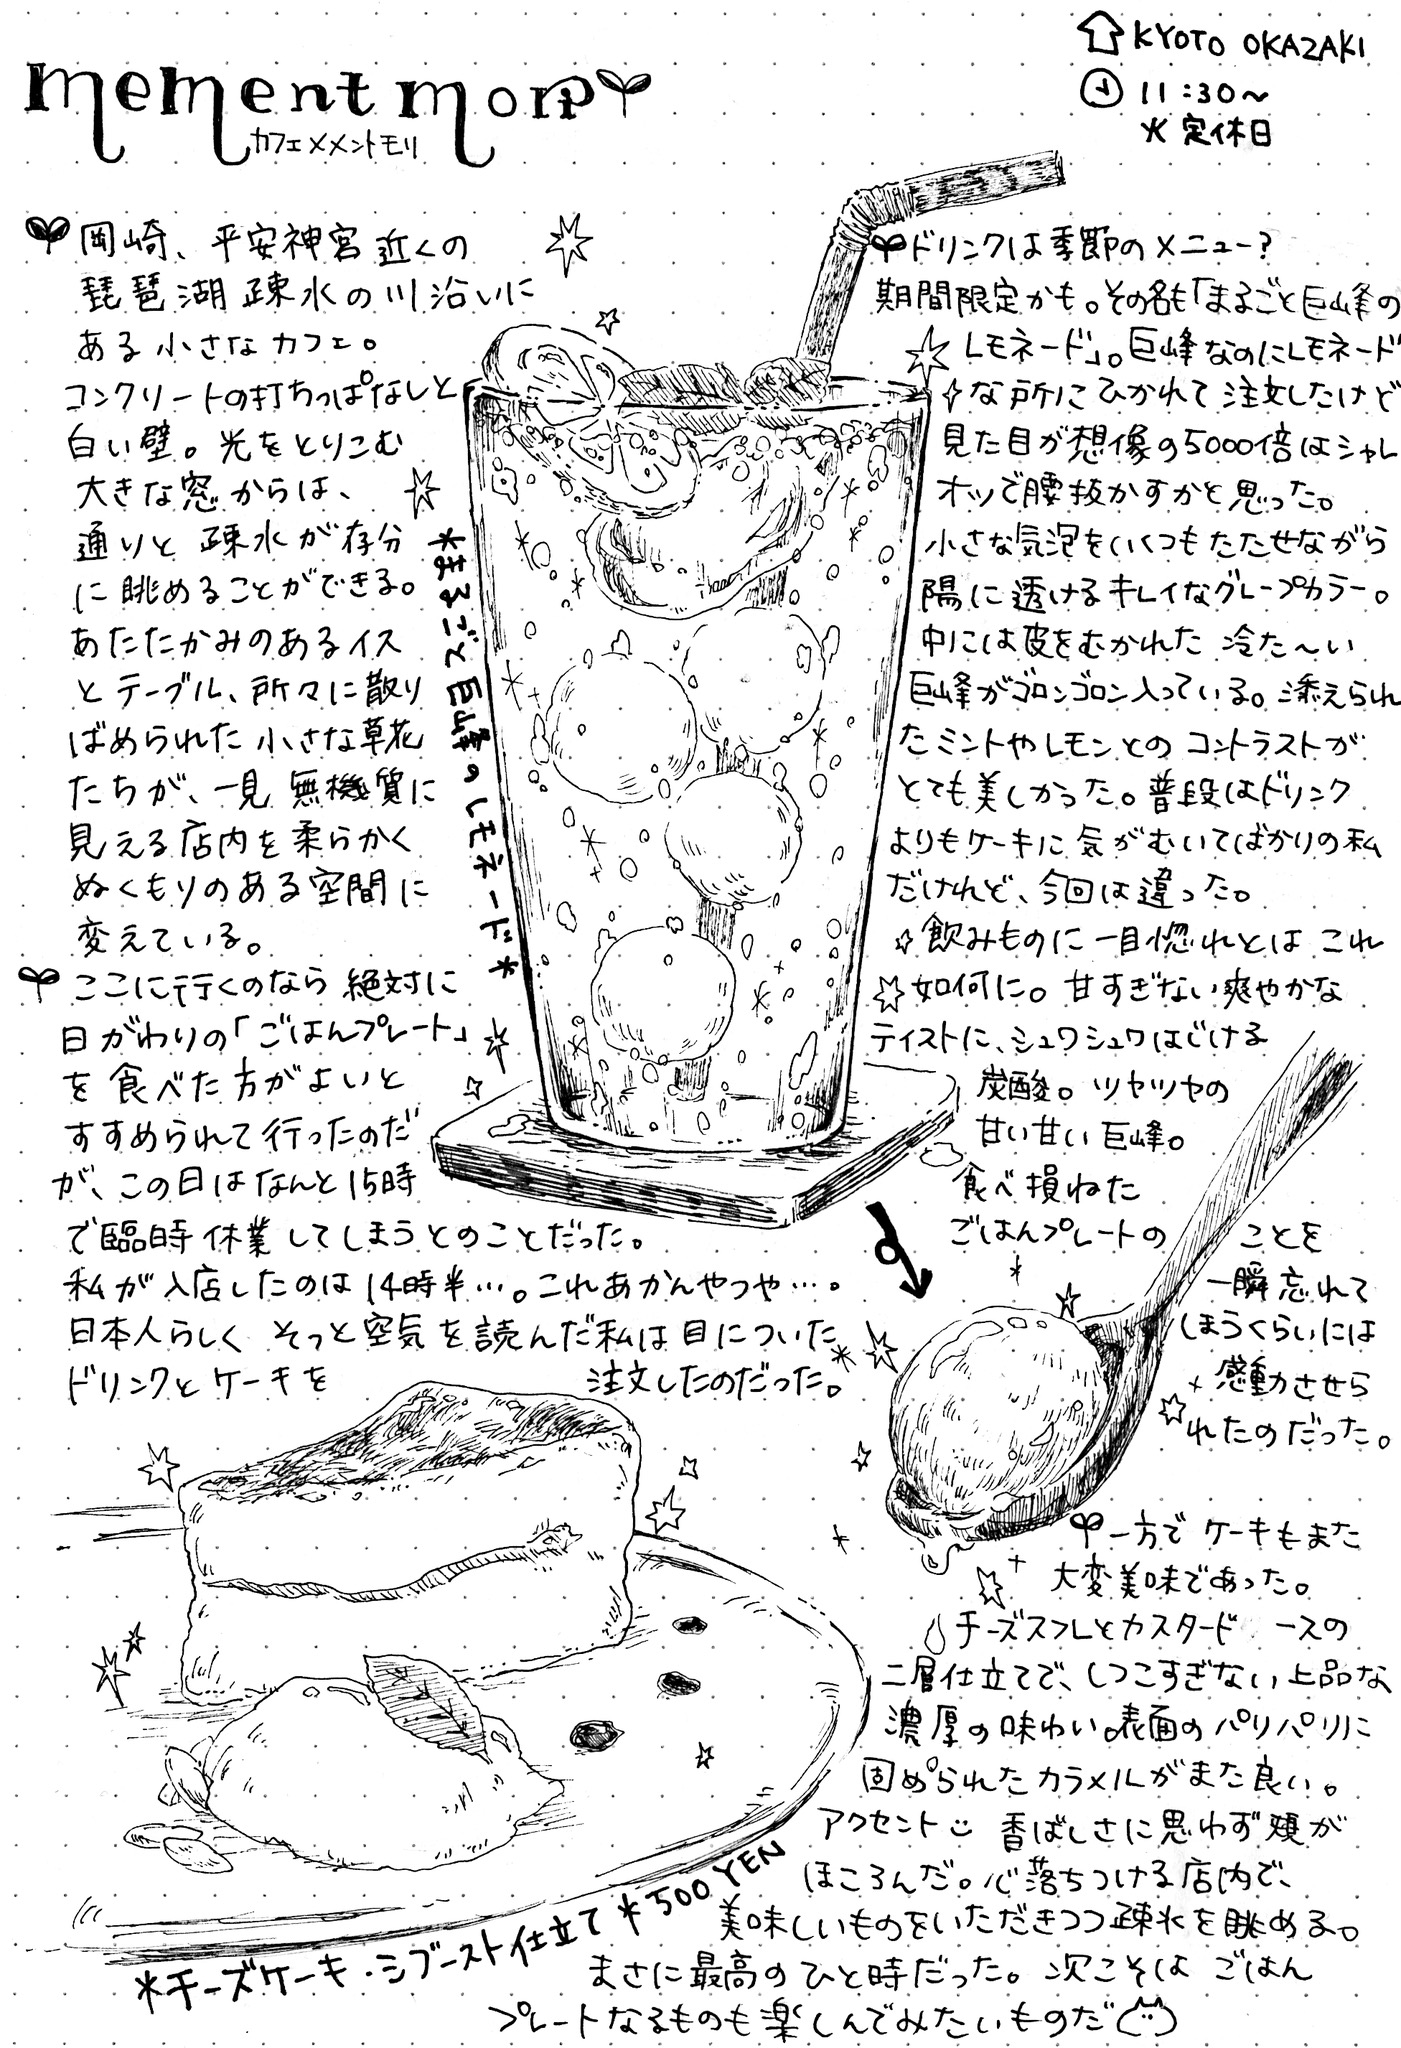 mement mori
カフェ メメントモリ
KYOTO OKAZAKI
11:30〜
火 定休日
岡崎、平安神宮近くの
琵琶湖疎水の川沿いに
ある小さなカフェ。
コンクリートの打ちっぱなしと
白い壁。光をとりこむ
大きな窓からは、
通りと疎水が存分
に眺めることができる。
あたたかみのあるイス
とテーブル、所々に散り
ばめられた小さな草花
たちが、一見無機質に
見える店内を柔らかく
ぬくもりのある空間に
変えている。
ここに行くのなら絶対に
日がわりの「ごはんプレート」
を食べた方がよいと
すすめられて行ったのだ
が、この日はなんと15時
で臨時休業してしまうとのことだった。
私が入店したのは14時半…。これあかんやつや…。
日本人らしくそっと空気を読んだ私は目についた
ドリンクとケーキを注文したのだった。
*まるごと巨峰のレモネード*
ドリンクは季節のメニュー?
期間限定かも。その名も「まるごと巨峰の
レモネード」。巨峰なのにレモネード
な所にひかれて注文したけど
見た目が想像の5000倍はシャレ
オツで腰抜かすかと思った。
小さな気泡をいくつもたたせながら
陽に透けるキレイなグレープカラー。
中には皮をむかれた冷た〜い
巨峰がゴロンゴロン入っている。添えられ
たミントやレモンとのコントラストが
とても美しかった。普段はドリンク
よりもケーキに気がむいてばかりの私
だけれど、今回は違った。
飲みものに一目惚れとはこれ
如何に。甘すぎない爽やかな
テイストに、シュワシュワはじける
炭酸。ツヤツヤの
甘い甘い巨峰。
食べ損ねた
ごはんプレートのことを
一瞬忘れて
しまうくらいには
感動させら
れたのだった。
一方でケーキもまた
大変美味であった。
チーズスフレとカスタード ースの
二層仕立てで、しつこすぎない上品な
濃厚の味わい。表面のパリパリに
固められたカラメルがまた良い。
アクセント 香ばしさに思わず頬が
ほころんだ。心落ちつける店内で、
美味しいものをいただきつつ疎水を眺める。
まさに最高のひと時だった。次こそはごはん
プレートなるものも楽しんでみたいものだ
*チーズケーキ・シブースト仕立て *500 YEN